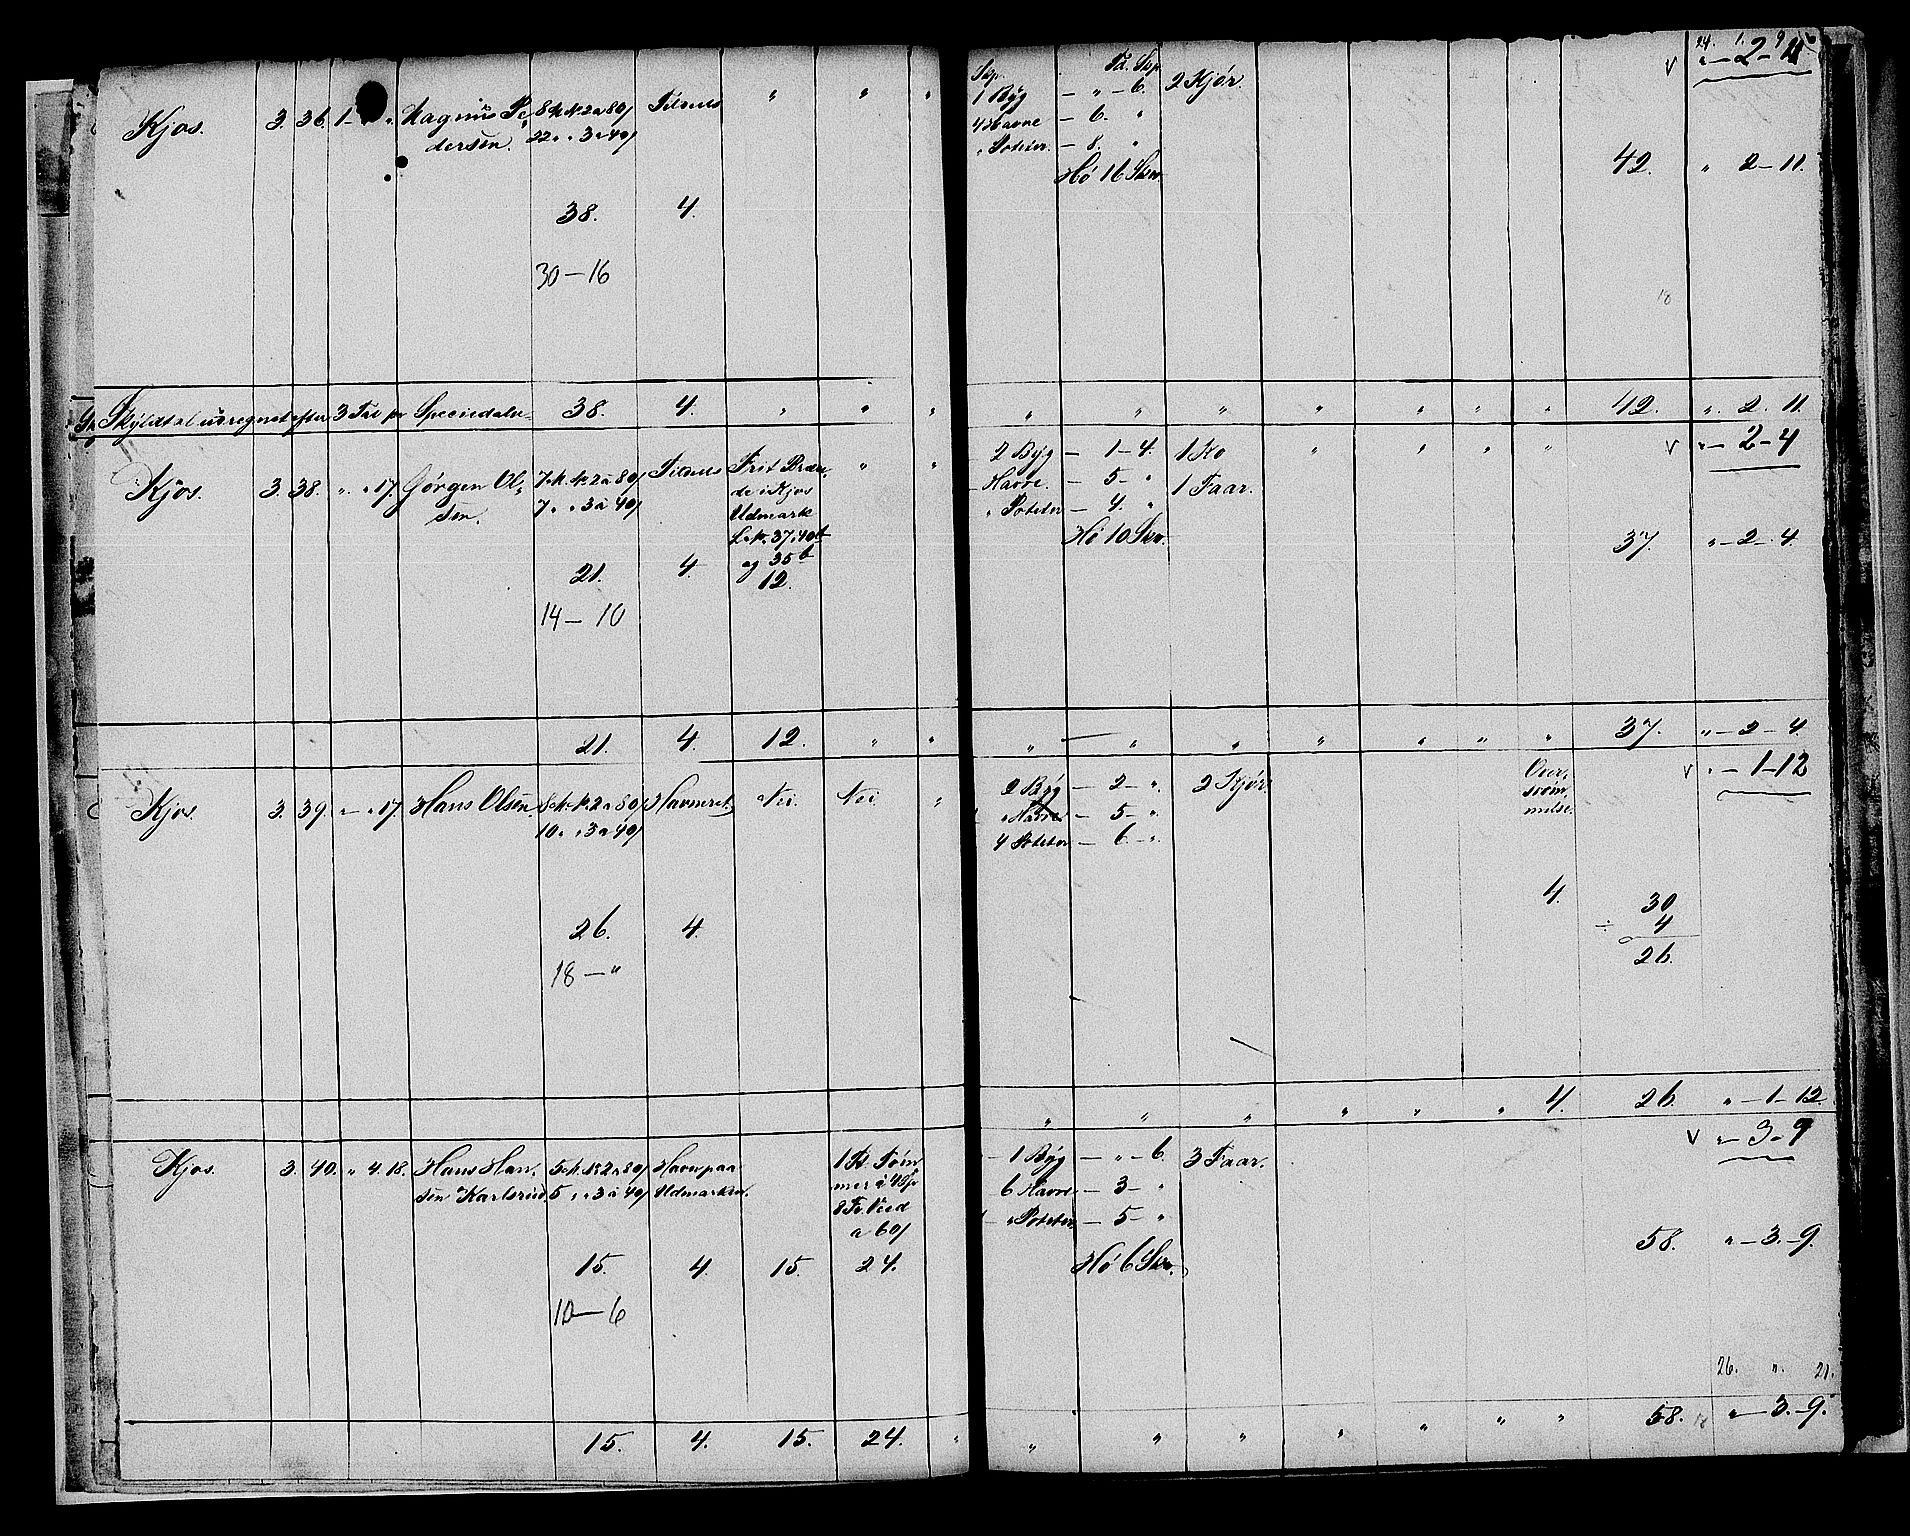 24. 1. 9
Skp. Td. Skp. V " – 2 – 11
Kjos. 3. 36. 1 – " Magnus Pe 8 M. N. 2 a 80/ Tilsæts " " " 1 Byg – " – 6. 2 Kjør.
dersen. 22 " " 3 a 40/ 4 Havre – 6. "
" Poteter. – 8. "
Hø 16 Skv. 42. " 2 – 11.
38. 4.
30 – 16
18
Skyldtal udregnet efter 3 Tal pr Speciedaler 38. 4. " " " " " " " " " " 42. " 2. 11.
V " – 2 – 4
Kjos. 3. 38. " " 17. Jørgen Ol 7 M. N. 2 a 80/ Frit Bræn " " 2 Byg – 1 – 4. 1 Ko " " " " "
sen. 7 " " 3 a 40/ de i Kjos Havre. – 5 – " 1 Faar.
Udmark " Poteter – 4. "
L. N. 37, 40 Hø 10 Skv. 37. " – 2 – 4.
og 35b
21. 4. 12.
14 – 10
21. 4. 12. " " " " " " " " " 37. " – 2 – 4
V " – 1 – 12
Kjos. 3. 39. " – " 17. Hans Olsen. 8 M. N. 2 a 80/ Havneret. Nei. Nei. " 2 Byg – 2 – " 2 Kjør Over
svøm
10 " " 3 a 40/ " Havre – 5 – " melse.
4 Poteter – 6 – "
4. 30
÷ 4
26. 4. 26.
18 – "
" " " " " " 4. 26. " – 1 – 12.
V " – 3 – 9
Kjos. 3. 40. " 4. 18. Hans Han 5 M. N. 2 a 80/ Havn paa 1 T. Tøm 1 Byg – " – 6. 3 Faar.
sen Karlsrud 5 " " 3 a 40/ Udmarken. mer a 48/ 6 Havre – 3 – "
8 Fv. Veed " Poteter. – 5 – "
a 60/ 58. " – 3. – 9.
15. 4. 15. 24. Hø 6 Skv.
10 – 6
26. " 21.
15. 4. 15. 24. " " " " " " " " 58. 18 " – 3. – 9.